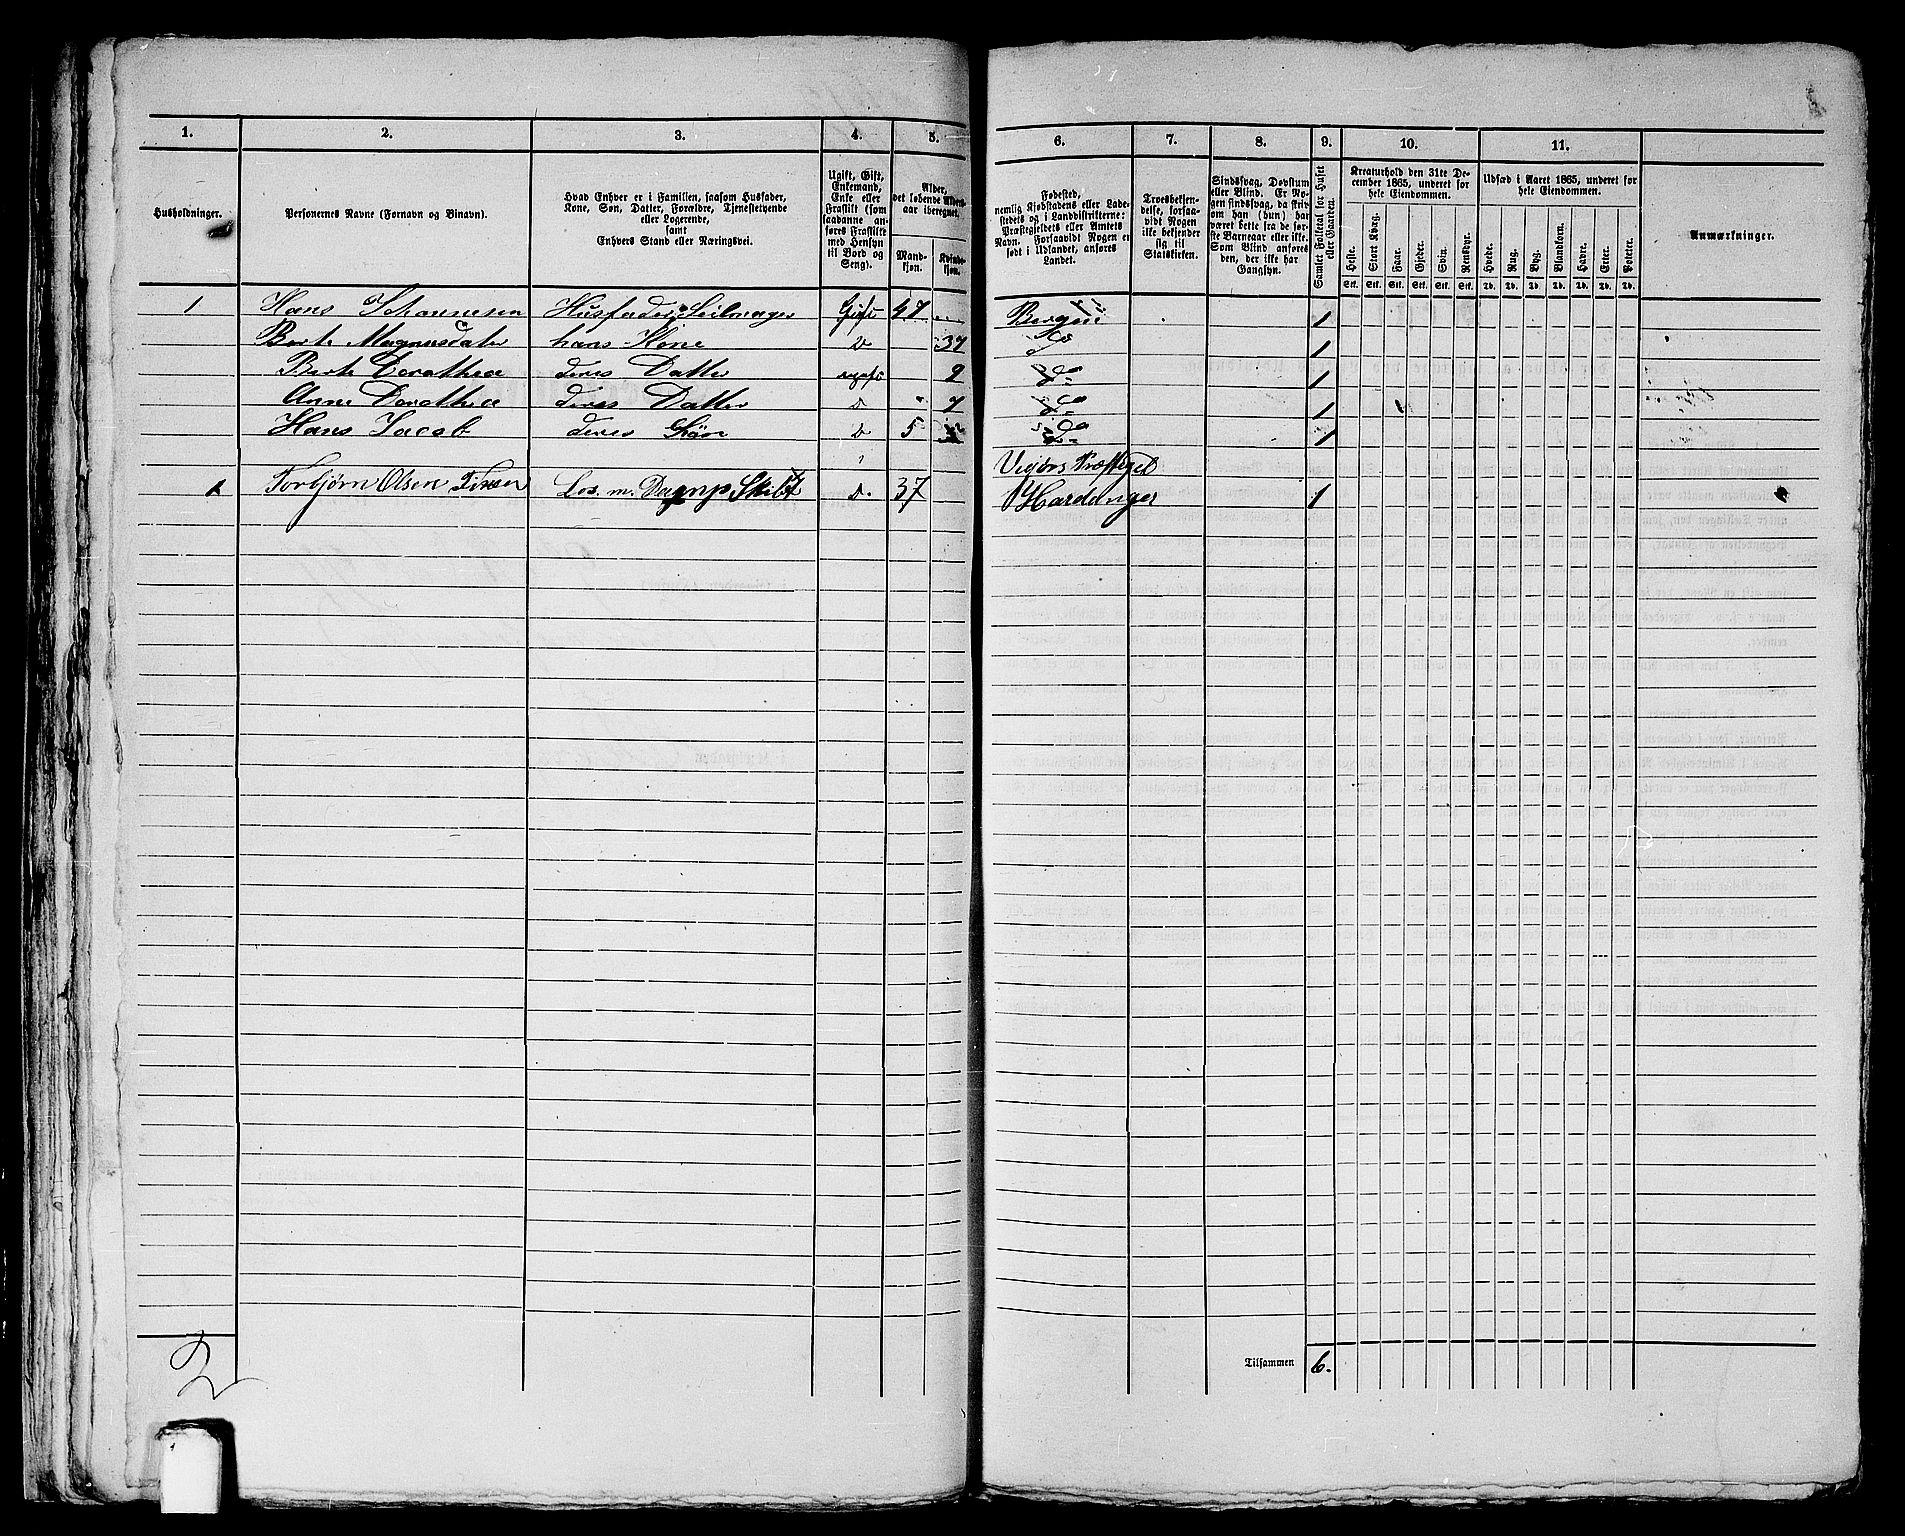 1. 2. 3. 4. 5. 6. 7. 8. 9. 10. 11.
Husholdninger.
Personernes Navne (Fornavn og Binavn).
Hvad Enhver er i Familien, saasom Husfader,
Kone, Søn, Datter, Forældre, Tjenestetyende
eller Logerende,
samt
Enhvers Stand eller Næringsvei.
Ugift, Gift,
Enkemand,
Enke eller
Fraskilt (som
saadanne an-
føres Fraskilte
med Hensyn
til Bord og
Seng).
Alder,
det løbende Alders-
aar iberegnet.
Mand-
kjøn.
Kvinde-
kjøn.
Fødested,
nemlig Kjøbstadens eller Lade-
stedets og i Landdistrikterne:
Præstegjeldets eller Amtets
Navn. Forsaavidt Nogen er
født i Udlandet, anføres
Landet.
Troesbekjen-
delse, forsaa-
vidt Nogen
ikke bekjender
sig til
Statskirken.
Sindssvag, Døvstum
eller Blind. Er No-
gen sindssvag, da skriv
om han (hun) har
været dette fra de før-
ste Barneaar eller ikke.
Som Blind anføres
den, der ikke har
Gangsyn.
Samlet Folketal for Huset
eller Gaarden.
Kreaturhold den 31te De-
cember 1865, underet for
hele Eiendommen.
Heste. Stort Kvæg. Faar. Gjeder. Svin. Rensdyr.
Stk. Stk. Stk. Stk. Stk. Stk.
Udsæd i Aaret 1865, underet for
hele Eiendommen.
Hvede. Rug. Byg. Blandkorn. Havre. Erter. Poteter.
Td. Td. Td. Td. Td. Td. Td.
Anmærkninger.
1 Hans Johannesen Husfader Seilmager Gift 47 Bergen 1
Berte Magnusdater hans Kone D 37 Do 1
Berte Dorothea deres Datter ugift 9 do 1
Anne Dorothea deres Datter D 7 do 1
Hans Jacob deres Søn D 5 do 1
Præstegel
1 Torbjørn Olsen Los. m. D. 37 Hardanger 1
Tilsammen 6.
2